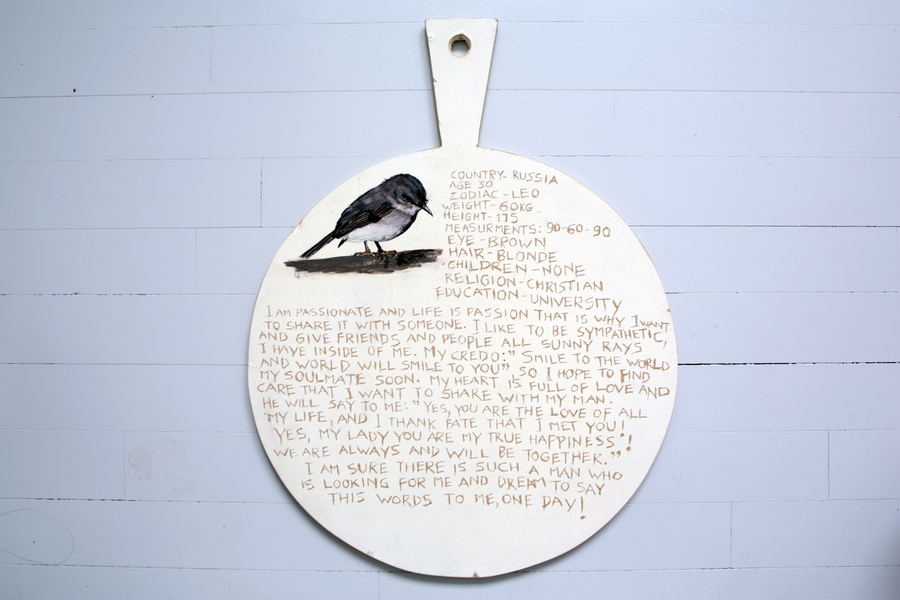 COUNTRY- RUSSIA
AGE 30
ZODIAC - LEO
WEIGHT- 60KG.
HEIGHT- 175
MEASURMENTS: 90-60-90
EYE - BROWN
HAIR- BLONDE
CHILDREN - NONE
RELIGION - CHRISTIAN
EDUCATION - UNIVERSITY
I AM PASSIONATE AND LIFE IS PASSION THAT IS WHY I WANT
TO SHARE IT WITH SOMEONE. I LIKE TO BE SYMPATHETIC,
AND GIVE FRIENDS AND PEOPLE ALL SUNNY RAYS
I HAVE INSIDE OF ME. MY CREDO:" SMILE TO THE WORLD
AND WORLD WILL SMILE TO YOU", SO I HOPE TO FIND
MY SOULMATE SOON. MY HEART IS FULL OF LOVE AND
CARE THAT I WANT TO SHARE WITH MY MAN.
HE WILL SAY TO ME:" YES, YOU ARE THE LOVE OF ALL
MY LIFE, AND I THANK FATE THAT I MET YOU!
YES, MY LADY YOU ARE MY TRUE HAPPINESS"!
WE ARE ALWAYS AND WILL BE TOGETHER."
I AM SURE THERE IS SUCH A MAN WHO
IS LOOKING FOR ME AND DREAM TO SAY
THIS WORDS TO ME, ONE DAY!